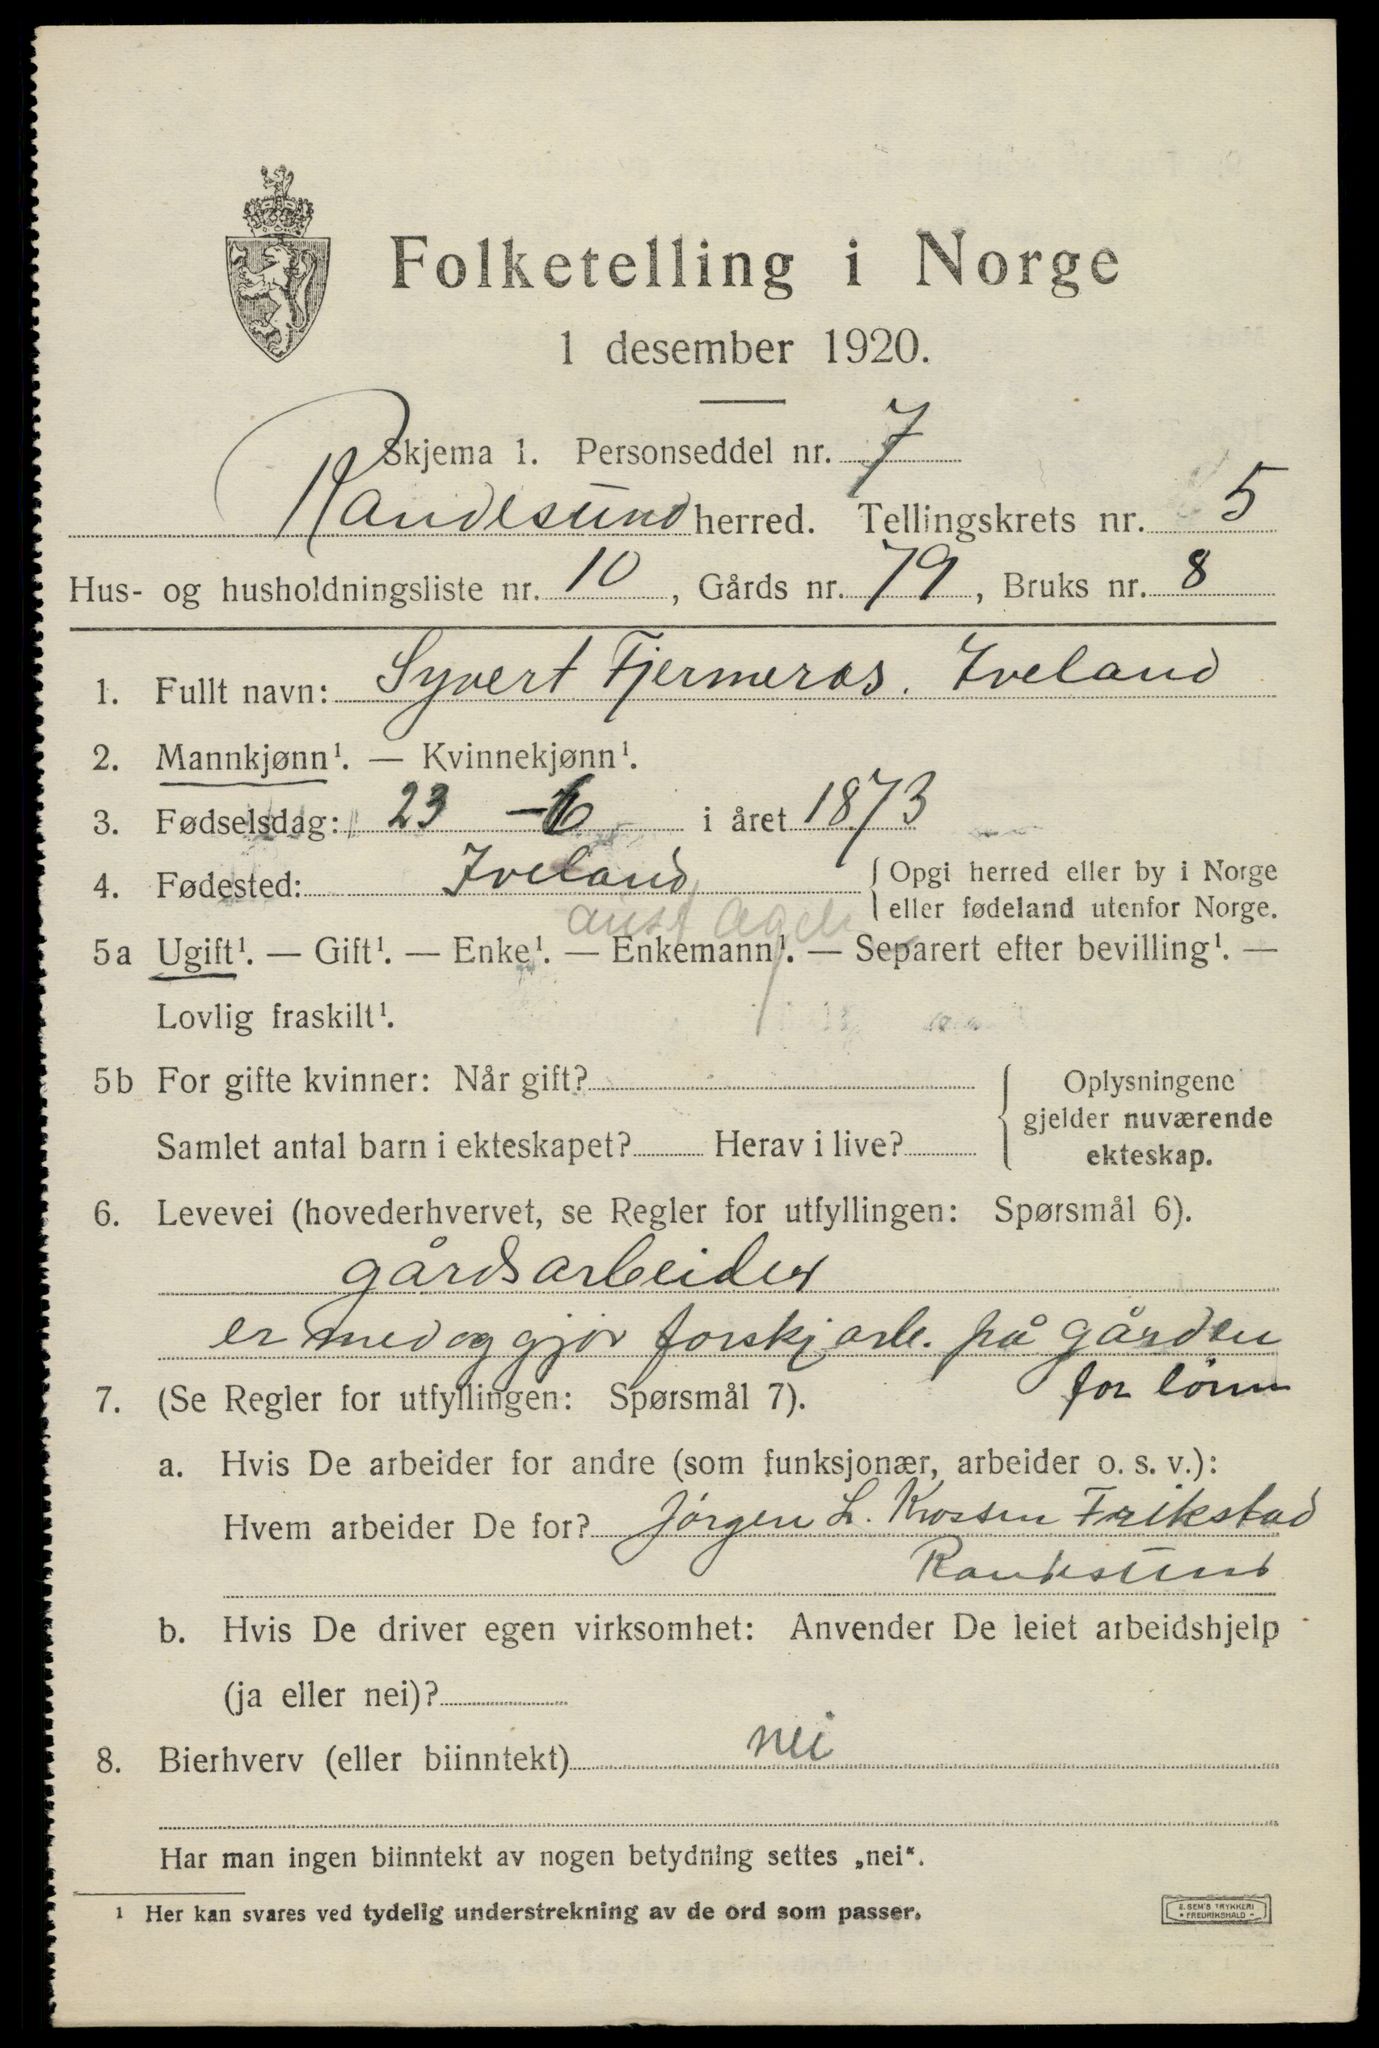 Folketelling i Norge
1 desember 1920.
Skjema 1. Personseddel nr. 7
Randesund herred. Tellingskrets nr. 5
Hus- og husholdningsliste nr. 10, Gårds nr. 79, Bruks nr. 8
1. Fullt navn: Syvert Fjermeros. Iveland
2. Mannkjønn¹. — Kvinnekjønn¹.
3. Fødselsdag: 23 - 6 i året 1873
4. Fødested: Iveland { Opgi herred eller by i Norge
eller fødeland utenfor Norge.
aust Agder
5a Ugift¹. — Gift¹. — Enke¹. — Enkemann¹. — Separert efter bevilling¹. —
Lovlig fraskilt¹.
5b For gifte kvinner: Når gift? { Oplysningene
gjelder nuværende
Samlet antal barn i ekteskapet? Herav i live? ekteskap.
6. Levevei (hovederhvervet, se Regler for utfyllingen: Spørsmål 6).
gårdsarbeider
er med og gjør forskj arb. på gården
for lønn
7. (Se Regler for utfyllingen: Spørsmål 7).
a. Hvis De arbeider for andre (som funksjonær, arbeider o. s. v.):
Hvem arbeider De for? Jørgen L. Krossen Frikstad
Randesund
b. Hvis De driver egen virksomhet: Anvender De leiet arbeidshjelp
(ja eller nei)?
8. Bierhverv (eller biinntekt) nei
Har man ingen biinntekt av nogen betydning settes „nei".
¹ Her kan svares ved tydelig understrekning av de ord som passer.
E. SEM'S TRYKKERI
FREDRIKSHALD